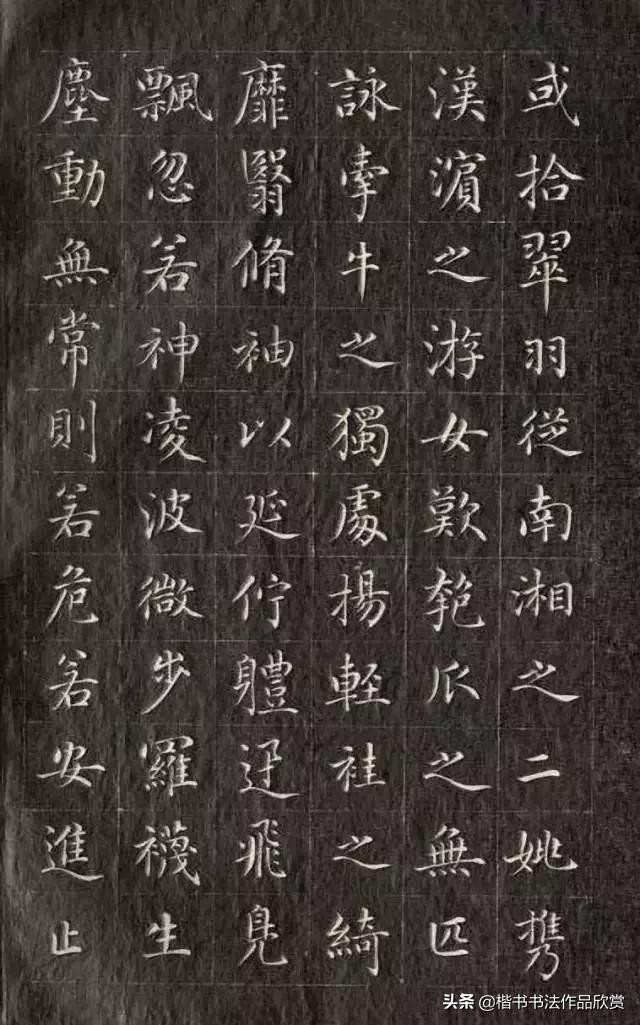 或拾翠羽從南湘之二姚携
漢濱之游女歎匏瓜之無匹
詠牽牛之獨處揚輕袿之綺
靡翳脩袖以延佇軆迅飛鳧
飄忽若神凌波微步羅襪生
塵動無常則若危若安進止
头条 @楷书书法作品欣赏